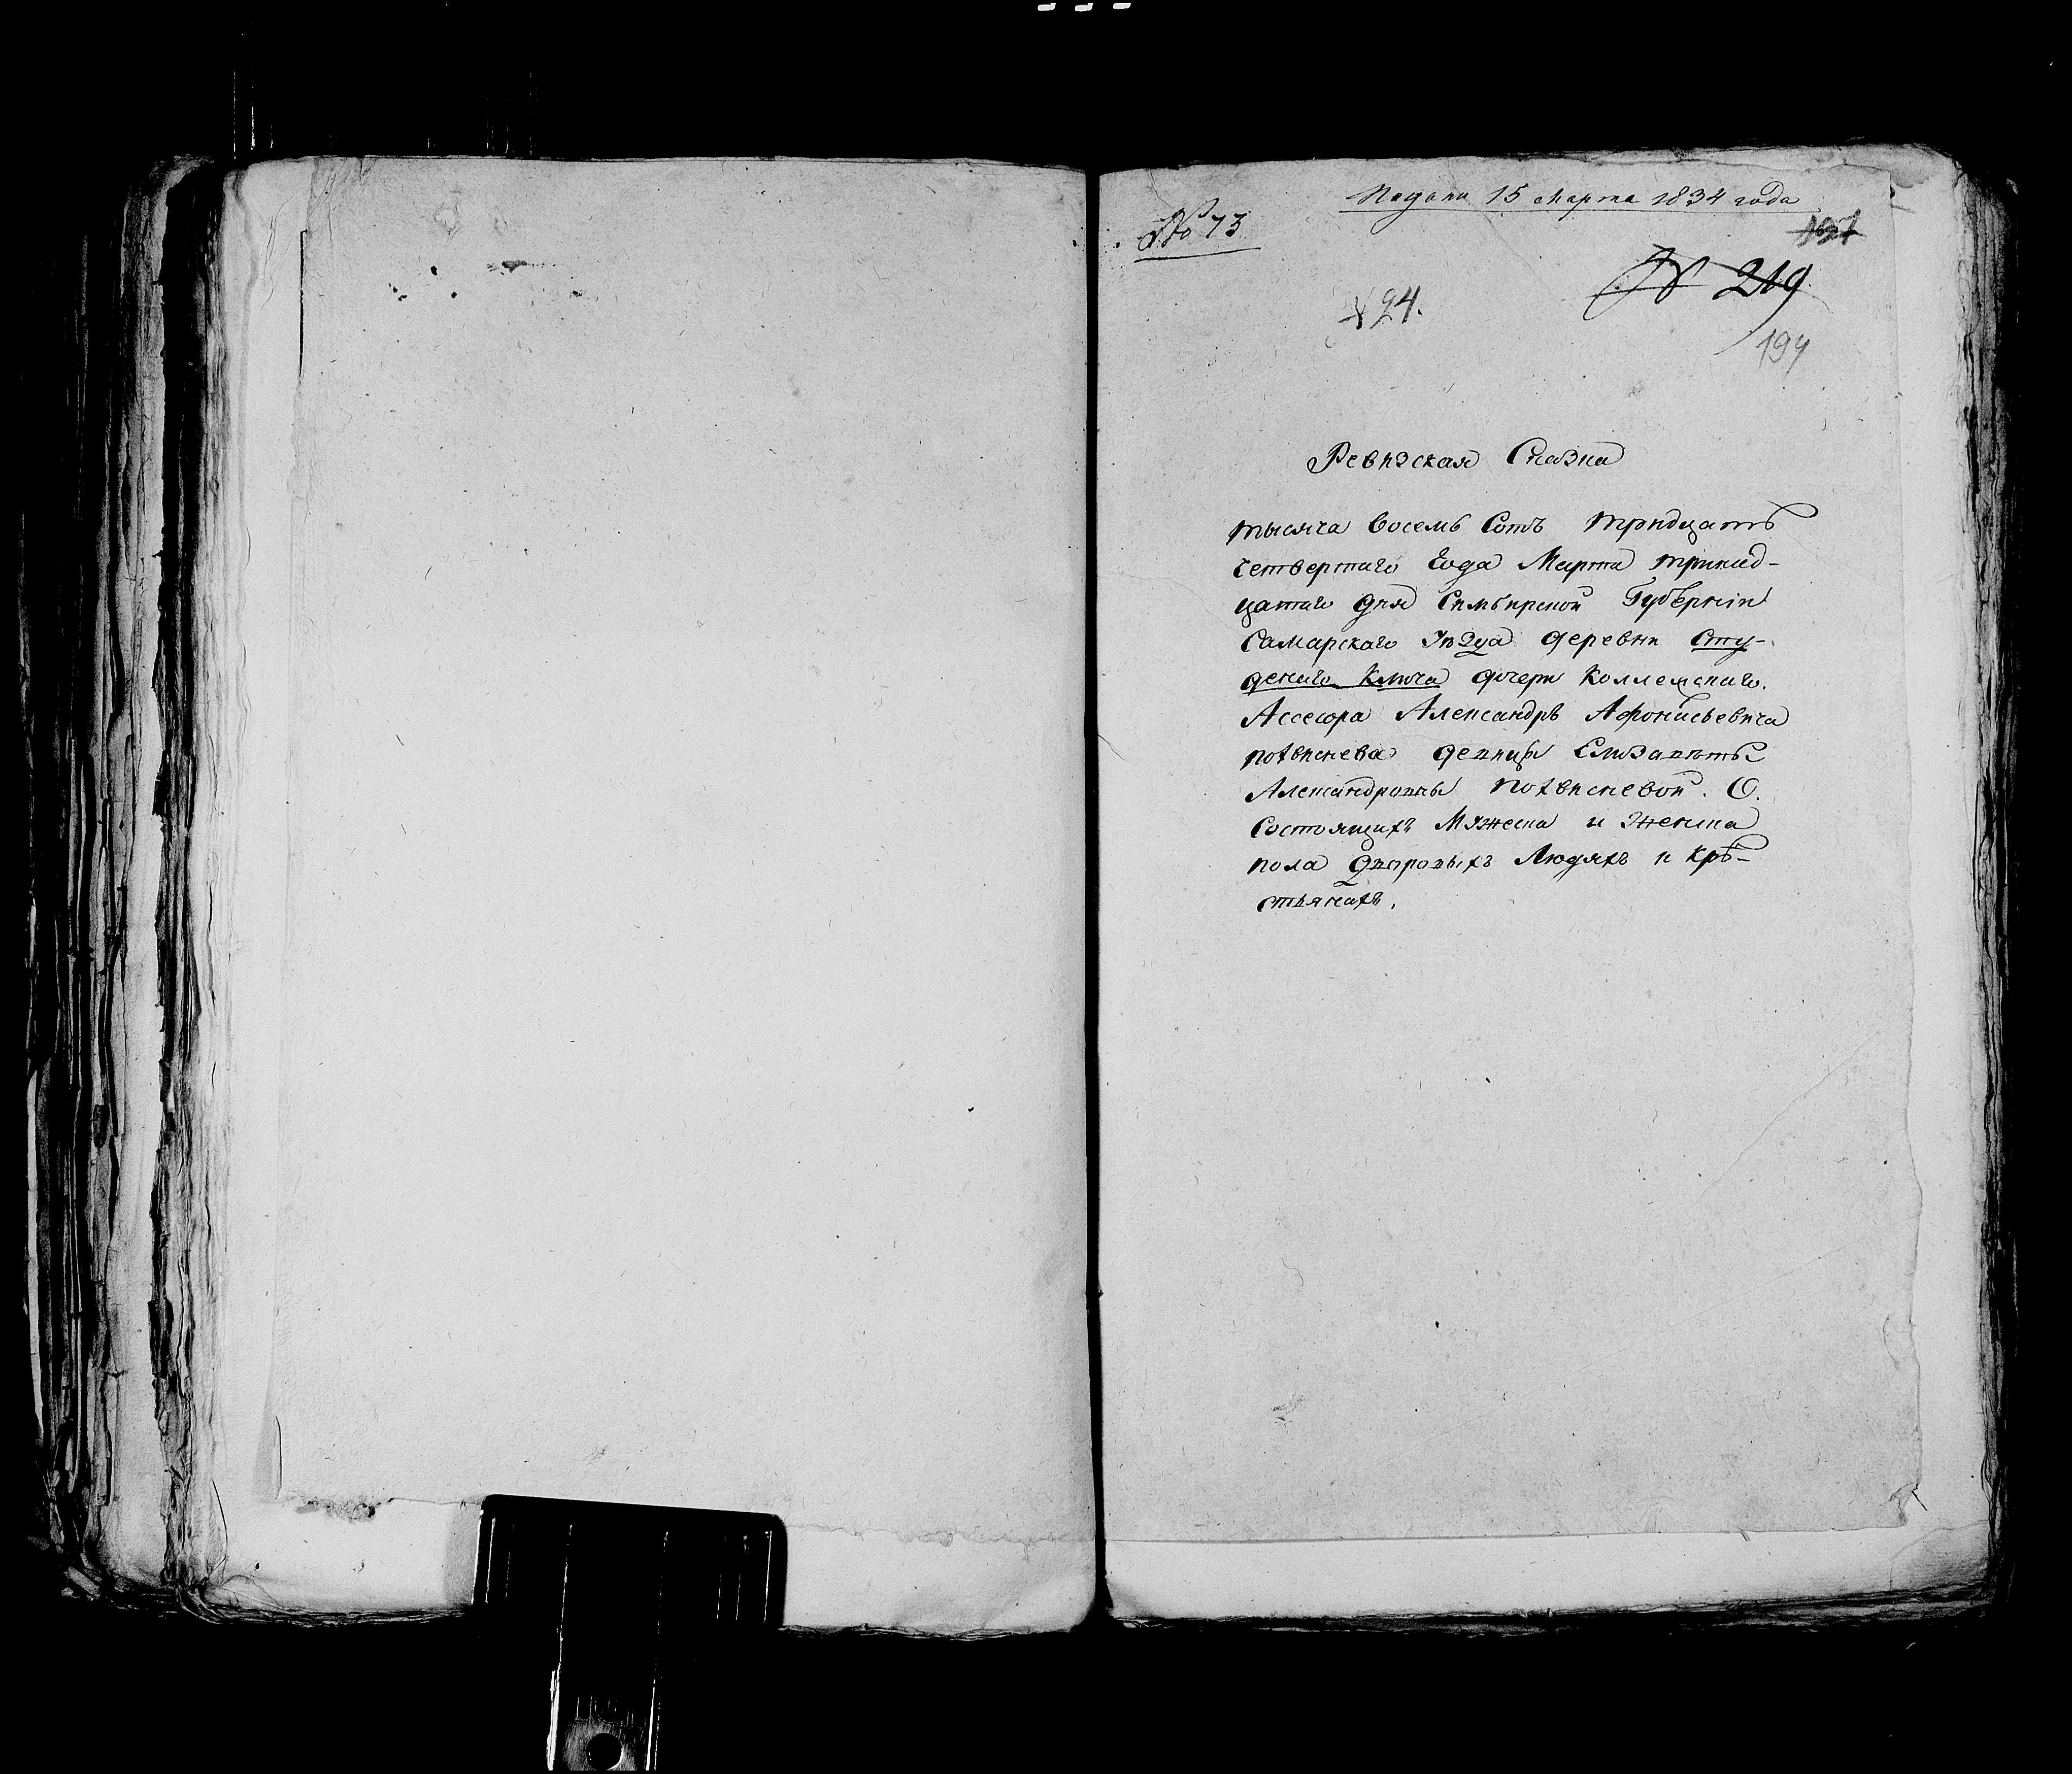 Подана 15 Марта 1834 года
№ 73
№ 219
94.
194
Ревизская Сказка
тысяча Восемь Сотъ тридцать
четвертаго Года Марта тринад-
цатаго дня Симбирской Губерніи
Самарскаго Уѣзда деревни Сту-
денаго Ключа дочери Коллежскаго
Ассесора Александръ Афонасьевича
Похвиснева девицы Елизаветы
Александровны Похвисневой. О.
Состоящихъ Мужеска и Женска
пола Дворовыхъ Людяхъ и Крѣ-
стьянахъ.